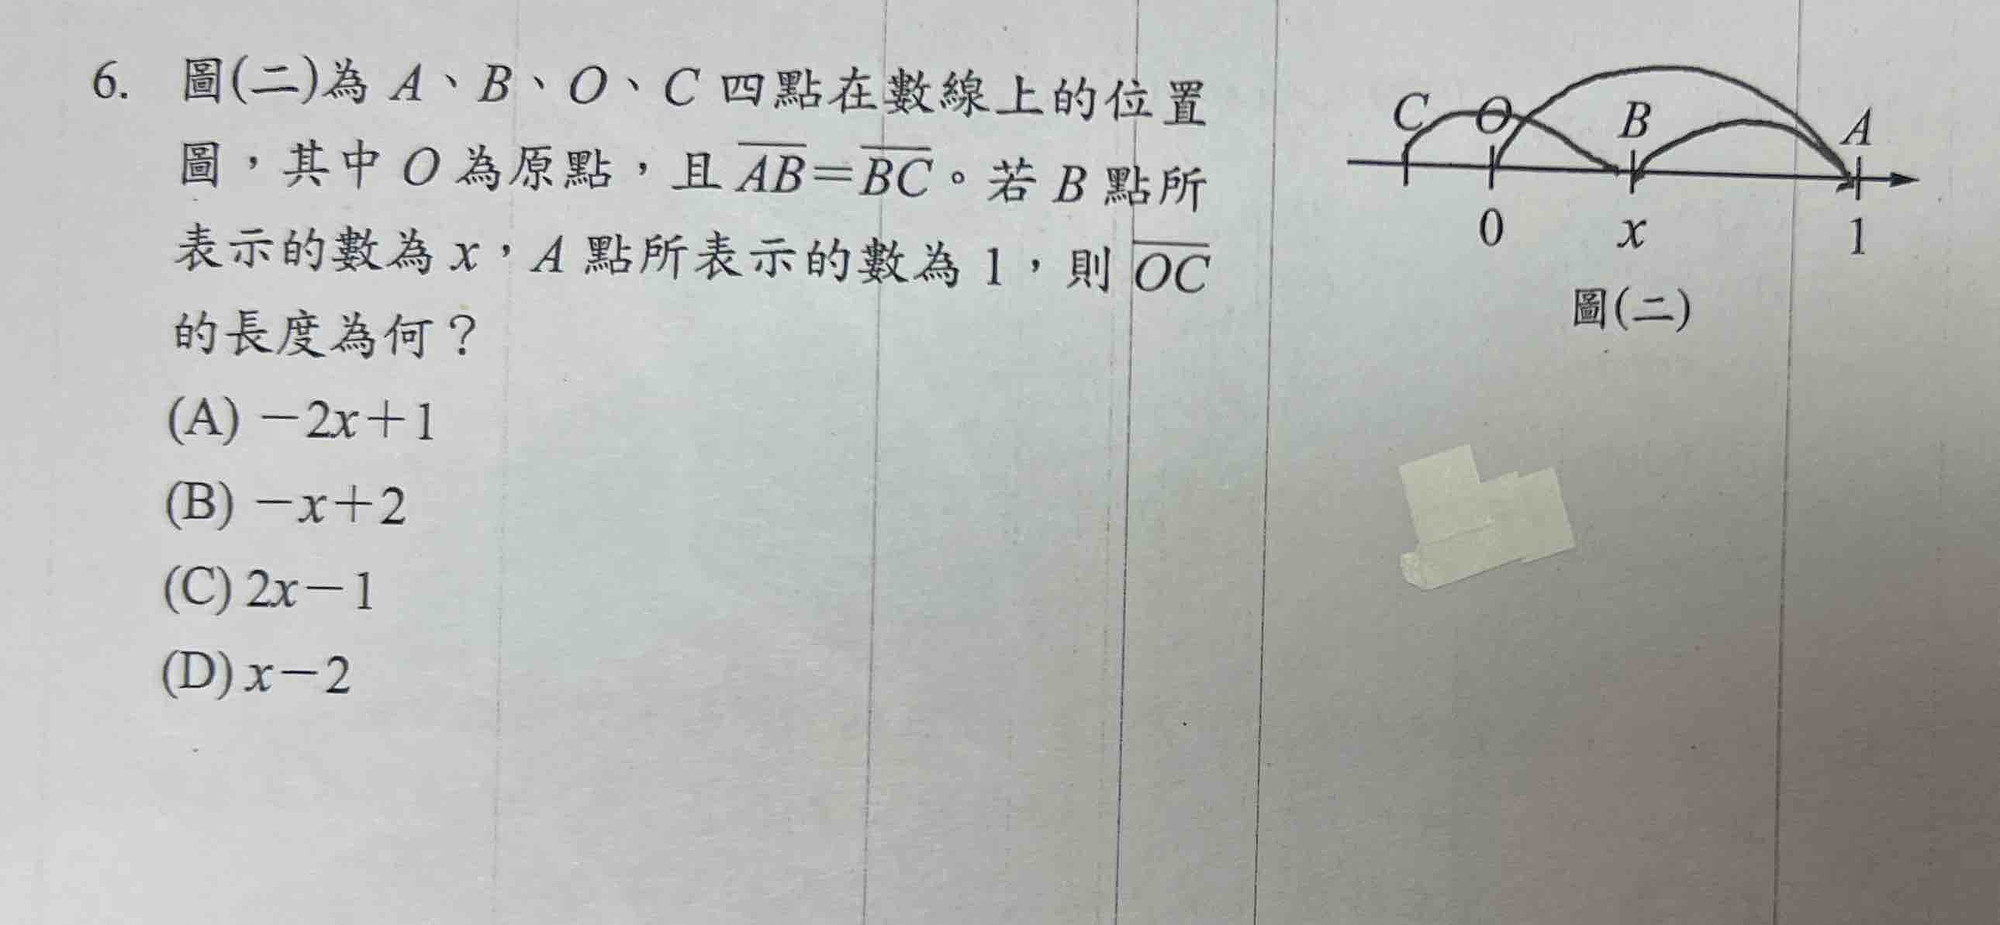 6. 圖(二)為 A、B、O、C 四點在數線上的位置
圖，其中 O 為原點，且 AB=BC。若 B 點所
表示的數為 x，A 點所表示的數為 1，則 OC
的長度為何？
(A) －2x＋1
(B) －x＋2
(C) 2x－1
(D) x－2
C O B A
0 x 1
圖(二)